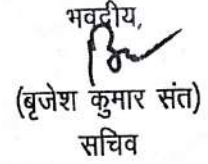 भवदीय,
(बृजेश कुमार संत)
सचिव